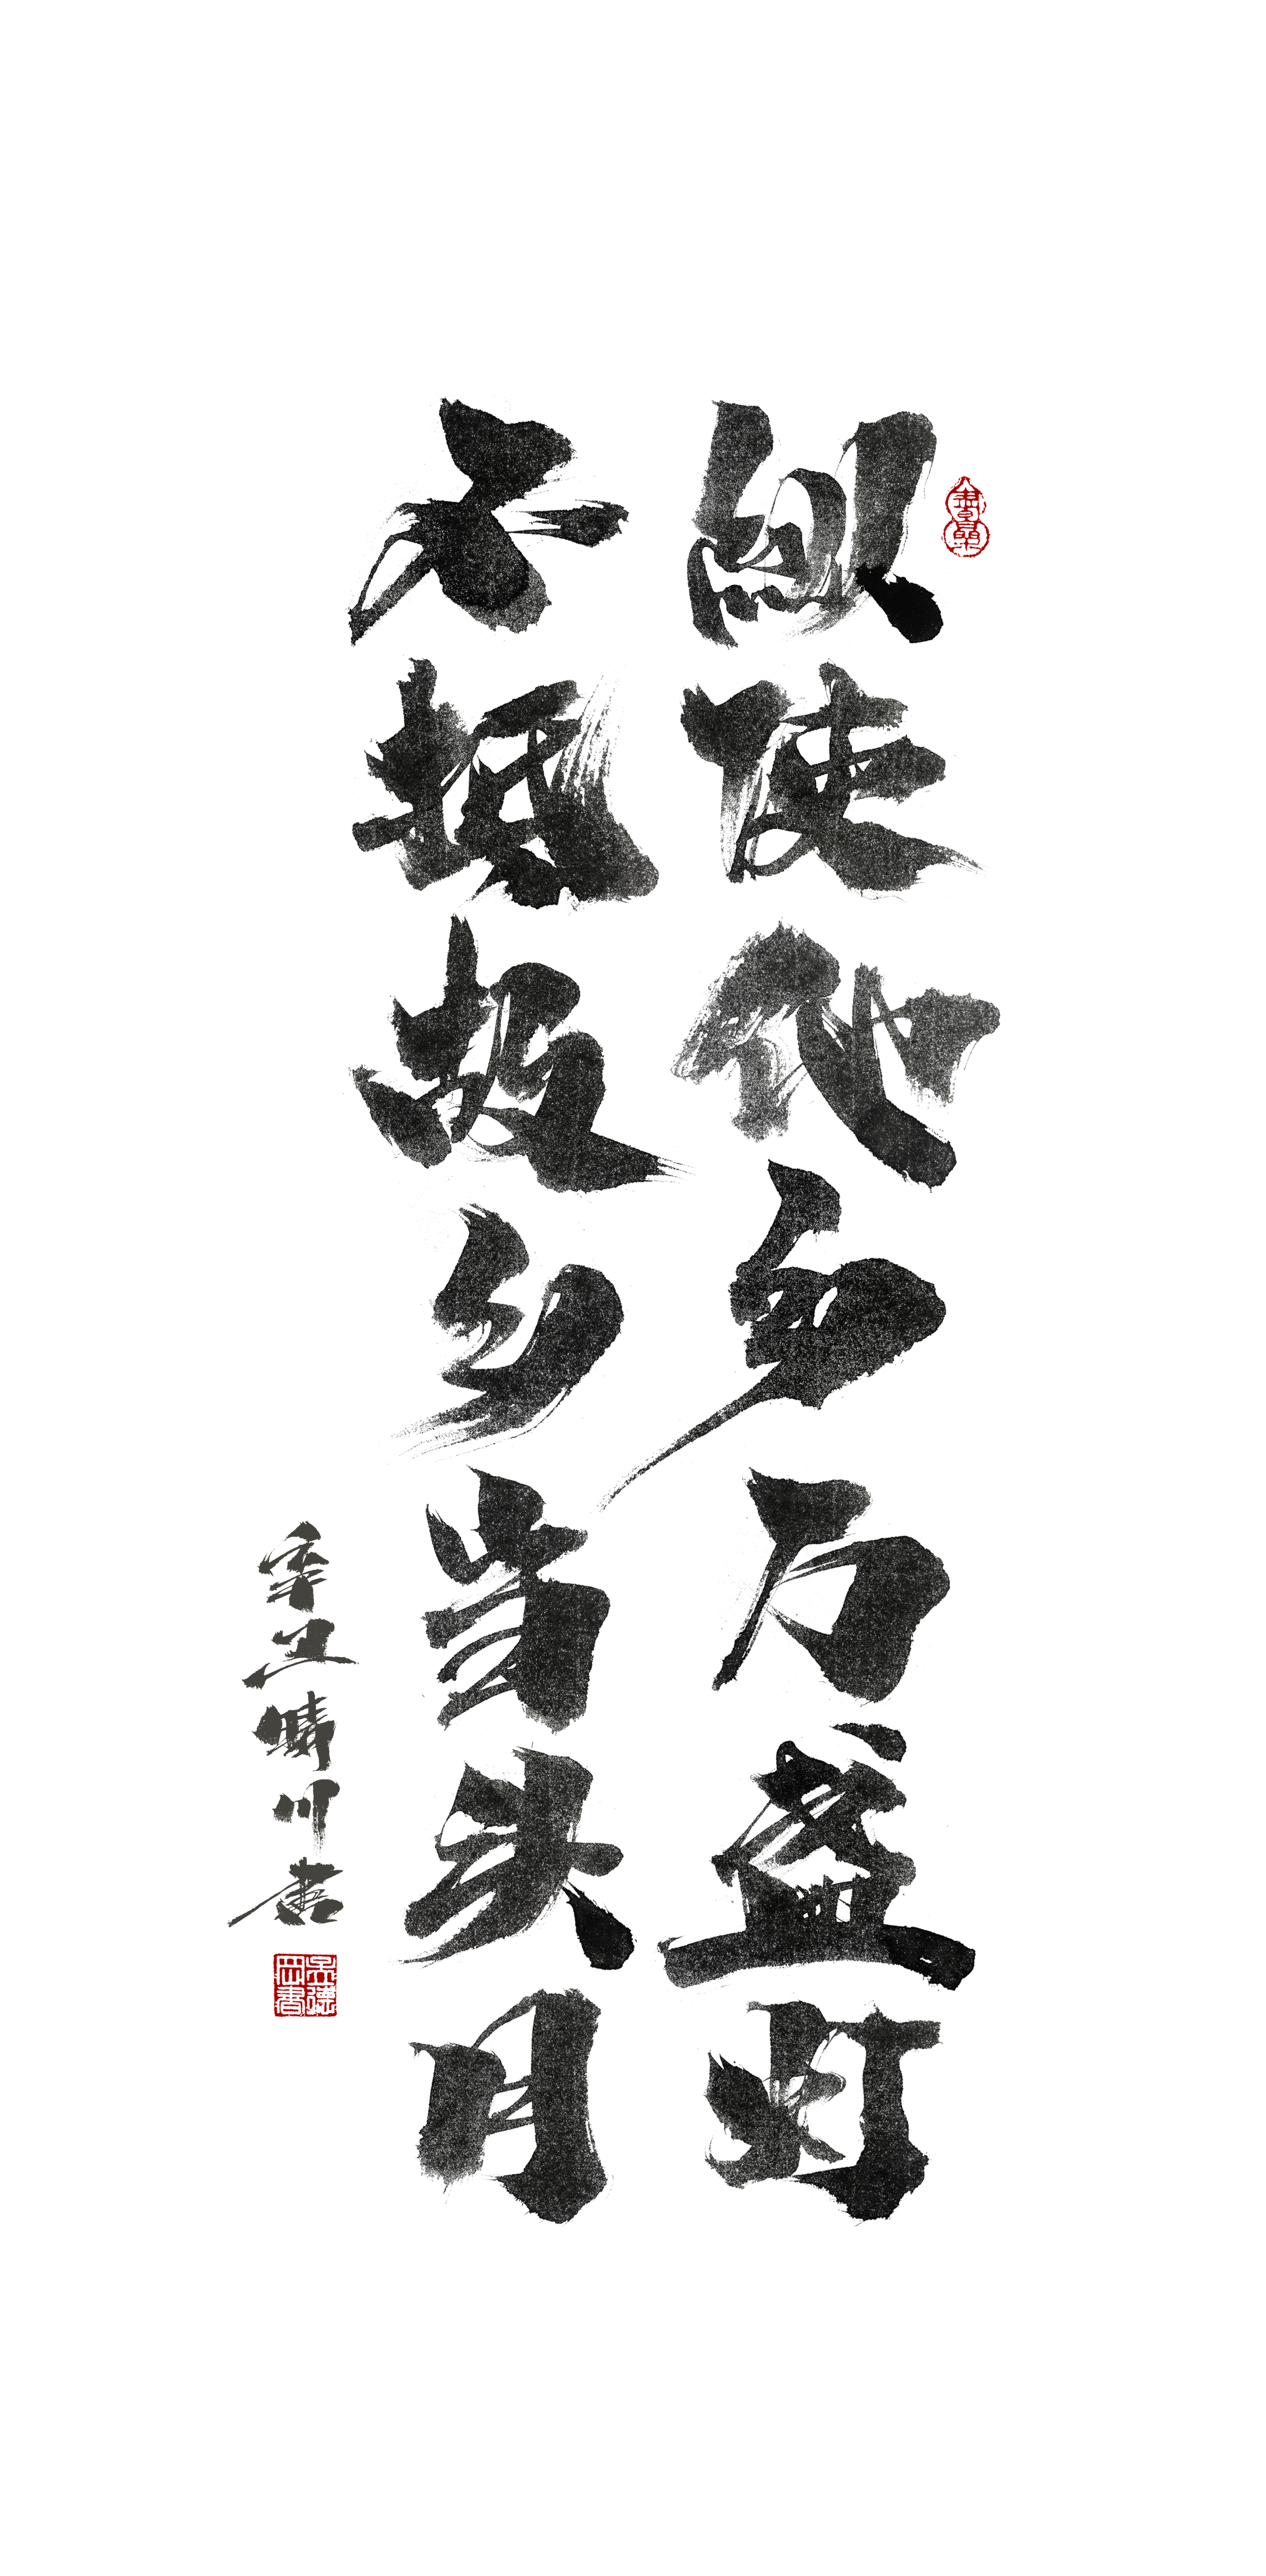 纵使他乡万盏灯
不抵故乡当头月
辛丑晴川書